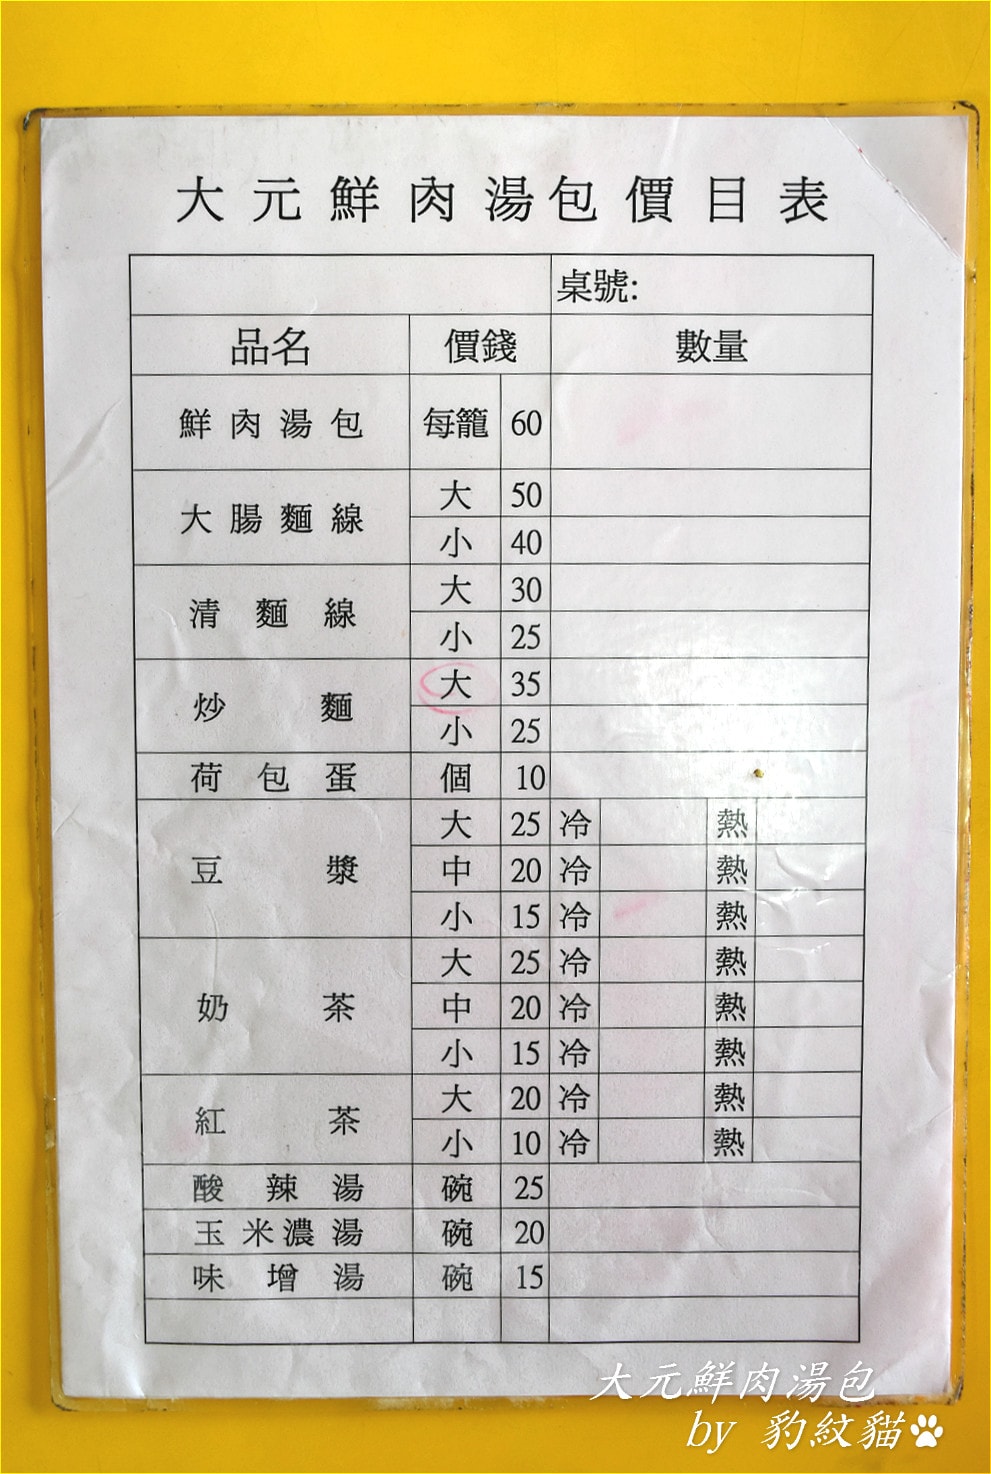 大元鮮肉湯包價目表
桌號:
品名 價錢 數量
鮮肉湯包 每籠 60
大腸麵線 大 50
小 40
清麵線 大 30
小 25
炒麵 大 35
小 25
荷包蛋 個 10
豆漿 大 25 冷 熱
中 20 冷 熱
小 15 冷 熱
奶茶 大 25 冷 熱
中 20 冷 熱
小 15 冷 熱
紅茶 大 20 冷 熱
小 10 冷 熱
酸辣湯 碗 25
玉米濃湯 碗 20
味增湯 碗 15
大元鮮肉湯包
by 豹紋貓